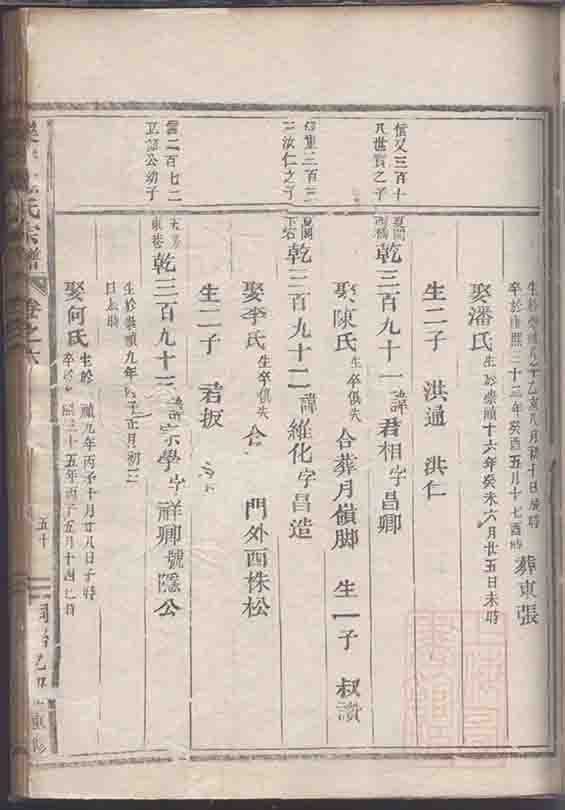 生於崇禎八年乙亥八月初十日戌時
卒於康熙三十二年癸酉五月十七酉時
葬東張
娶潘氏
生於崇禎十六年癸未六月廿五日未時
生二子 洪通 洪仁
信又三百十
几世賓之子
乾三百九十一諱君相字昌卿
娶陳氏
生卒俱失
合葬月嶺脚 生一子 叔讚
三汝仁之子
乾三百九十二諱維化字昌造
娶李氏
生卒俱失
合 門外西株松
生二子 若扳
雲二百七二
公幼子
東巷
乾三百九十三諱宗學字祥卿號隱公
生於崇禎九年丙子正月初二
日 時
娶何氏
生於 禎九年丙子十月廿八日子時
卒於 熙三十五年丙子五月十四巳時
氏宗譜
卷之六
五十
重修